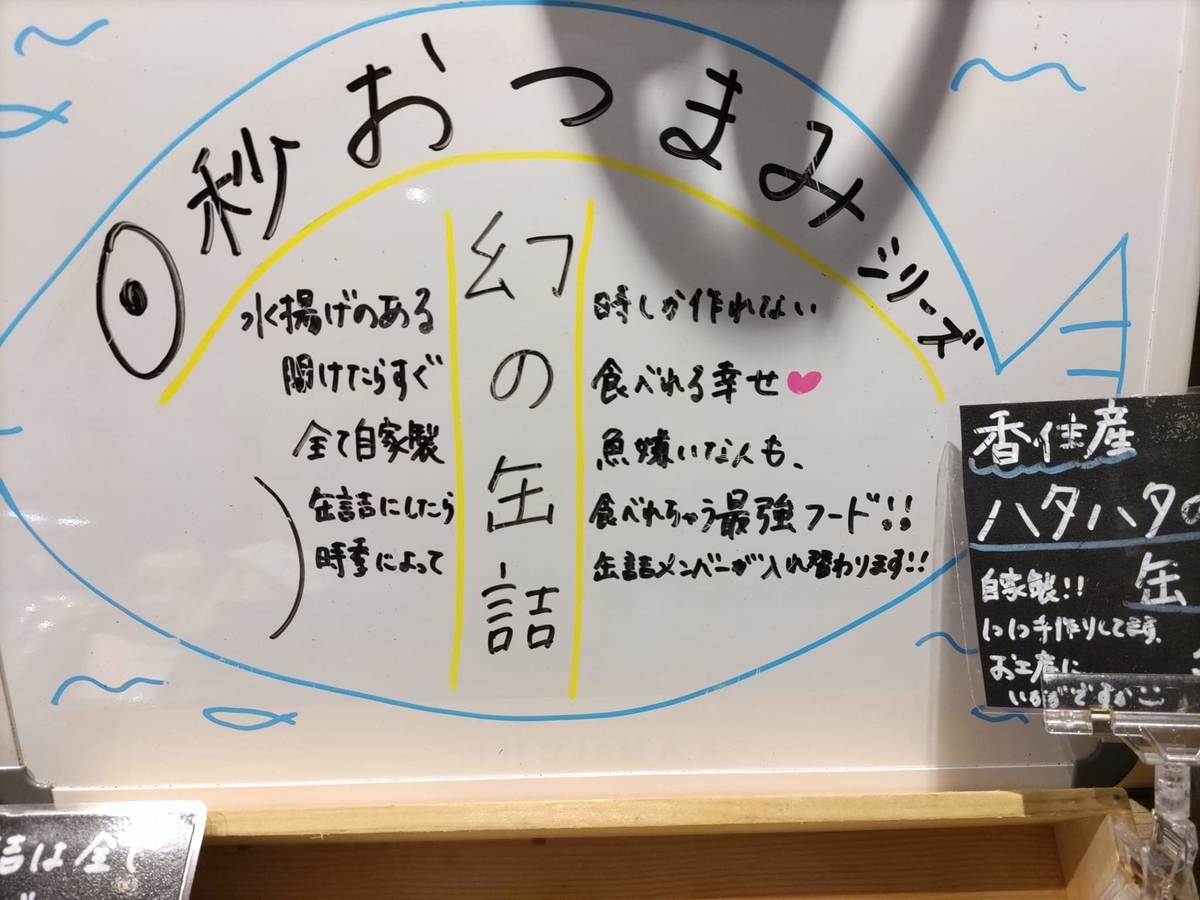 0秒おつまみシリーズ
幻の缶詰
水揚げのある時しか作れない
開けたらすぐ食べれる幸せ
全て自家製魚嫌いな人も、
缶詰にしたら食べれちゃう最強フード!!
時季によって缶詰メンバーが入れ替わります!!
香住産
ハタハタの
缶
自家製!!
1つ1つ手作りしてます。
お土産に
いかがですか
詰は全て